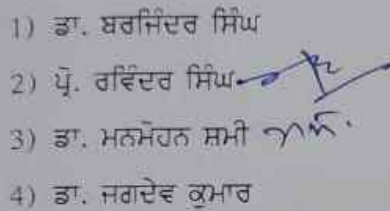 1) ਡਾ. ਬਰਜਿੰਦਰ ਸਿੰਘ
2) ਪ੍ਰੋ. ਰਵਿੰਦਰ ਸਿੰਘ
3) ਡਾ. ਮਨਮੋਹਨ ਸ਼ਮੀ
4) ਡਾ. ਜਗਦੇਵ ਕੁਮਾਰ